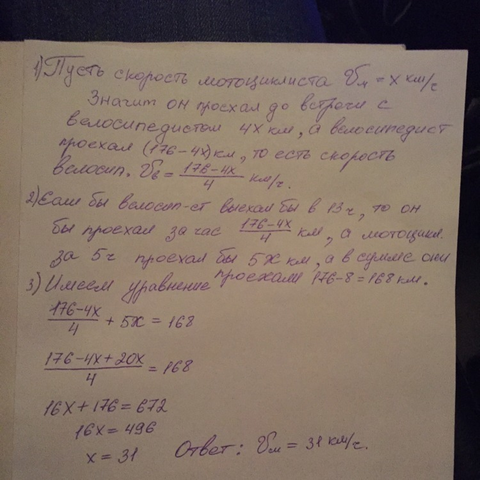 1) Пусть скорость мотоциклиста Vм = x км/ч
Значит он проехал до встречи с
велосипедистом 4x км, а велосипедист
проехал (176-4x) км, то есть скорость
велосип. Vв = (176-4x)/4 км/ч.
2) Если бы велосип-ст выехал бы в 13 ч, то он
бы проехал за час (176-4x)/4 км, а мотоцикл.
за 5 ч проехал бы 5x км, а в сумме они
проехали 176-8=168 км.
3) Имеем уравнение
(176-4x)/4 + 5x = 168
(176-4x+20x)/4 = 168
16x + 176 = 672
16x = 496
x = 31
Ответ: Vм = 31 км/ч.